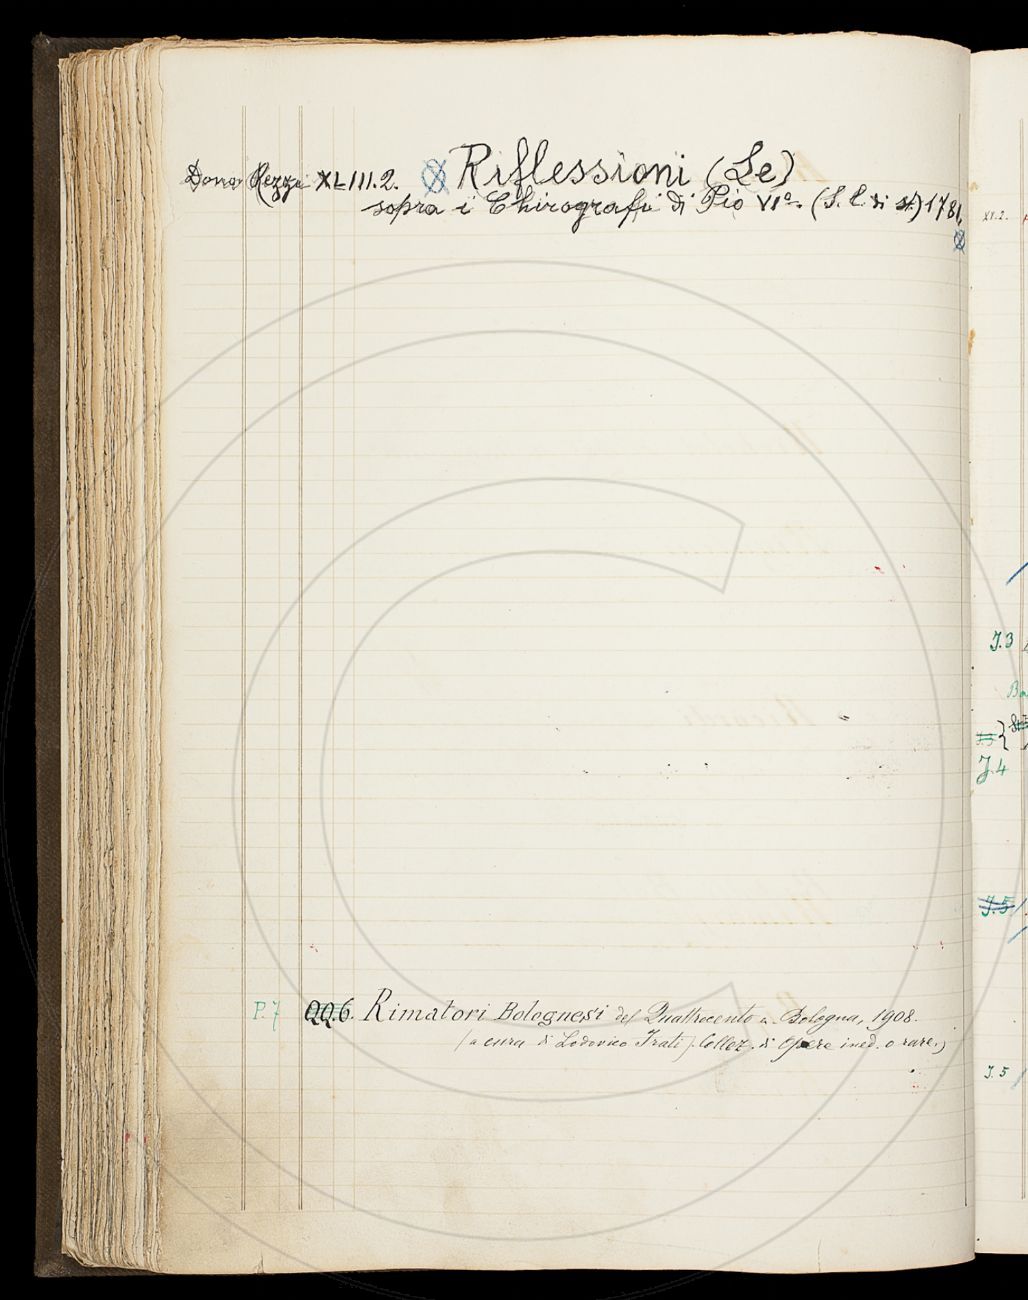 Dono Pezzi XLIII.2. Riflessioni (Le)
sopra i Chirografi di Pio VI°. (S. l. di st.) 1781.
P.7 QQ.6. Rimatori Bolognesi del Quattrocento – Bologna, 1908.
(a cura di Lodovico Frati). Collez. di Opere ined. o rare.)
XV.2.
J.3
J.4
J.5
J.5